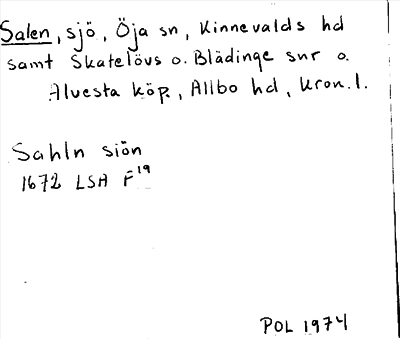 Salen, sjö, Öja sn, Kinnevalds hd
samt Skatelövs o. Blädinge snr o.
Alvesta köp., Allbo hd, Kron. l.
Sahln siön
1672 LSA F19
POL 1974